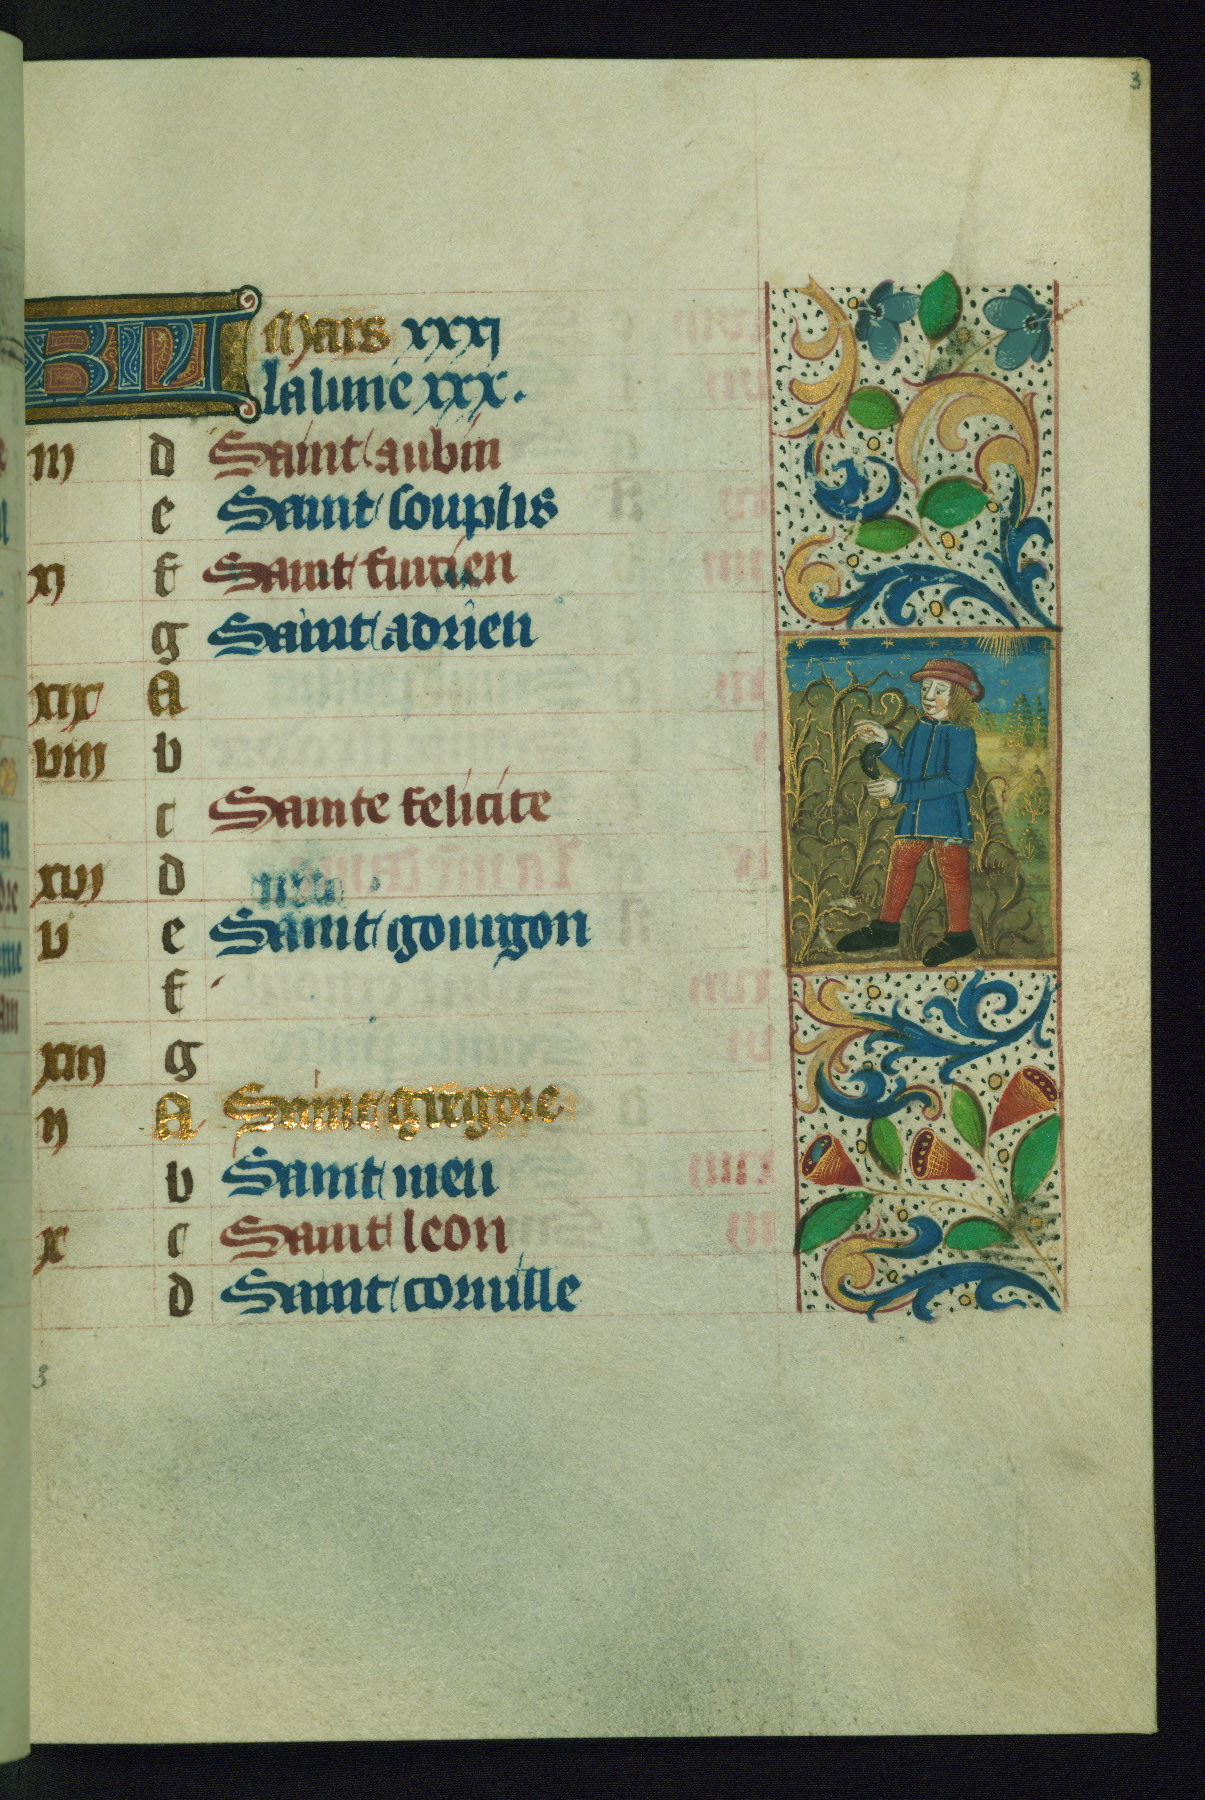 3
KL Mars xxxi
la lune xxx.
iii d Saint aubin
e Saint souplis
xi f Saint
g Saint adrien
xix A
viii b
c Sainte felicite
xvi d
v e Saint gourgon
f
xiii g
ii A Saint gregore
b Saint meu
x c Saint leon
d Saint cornille
3